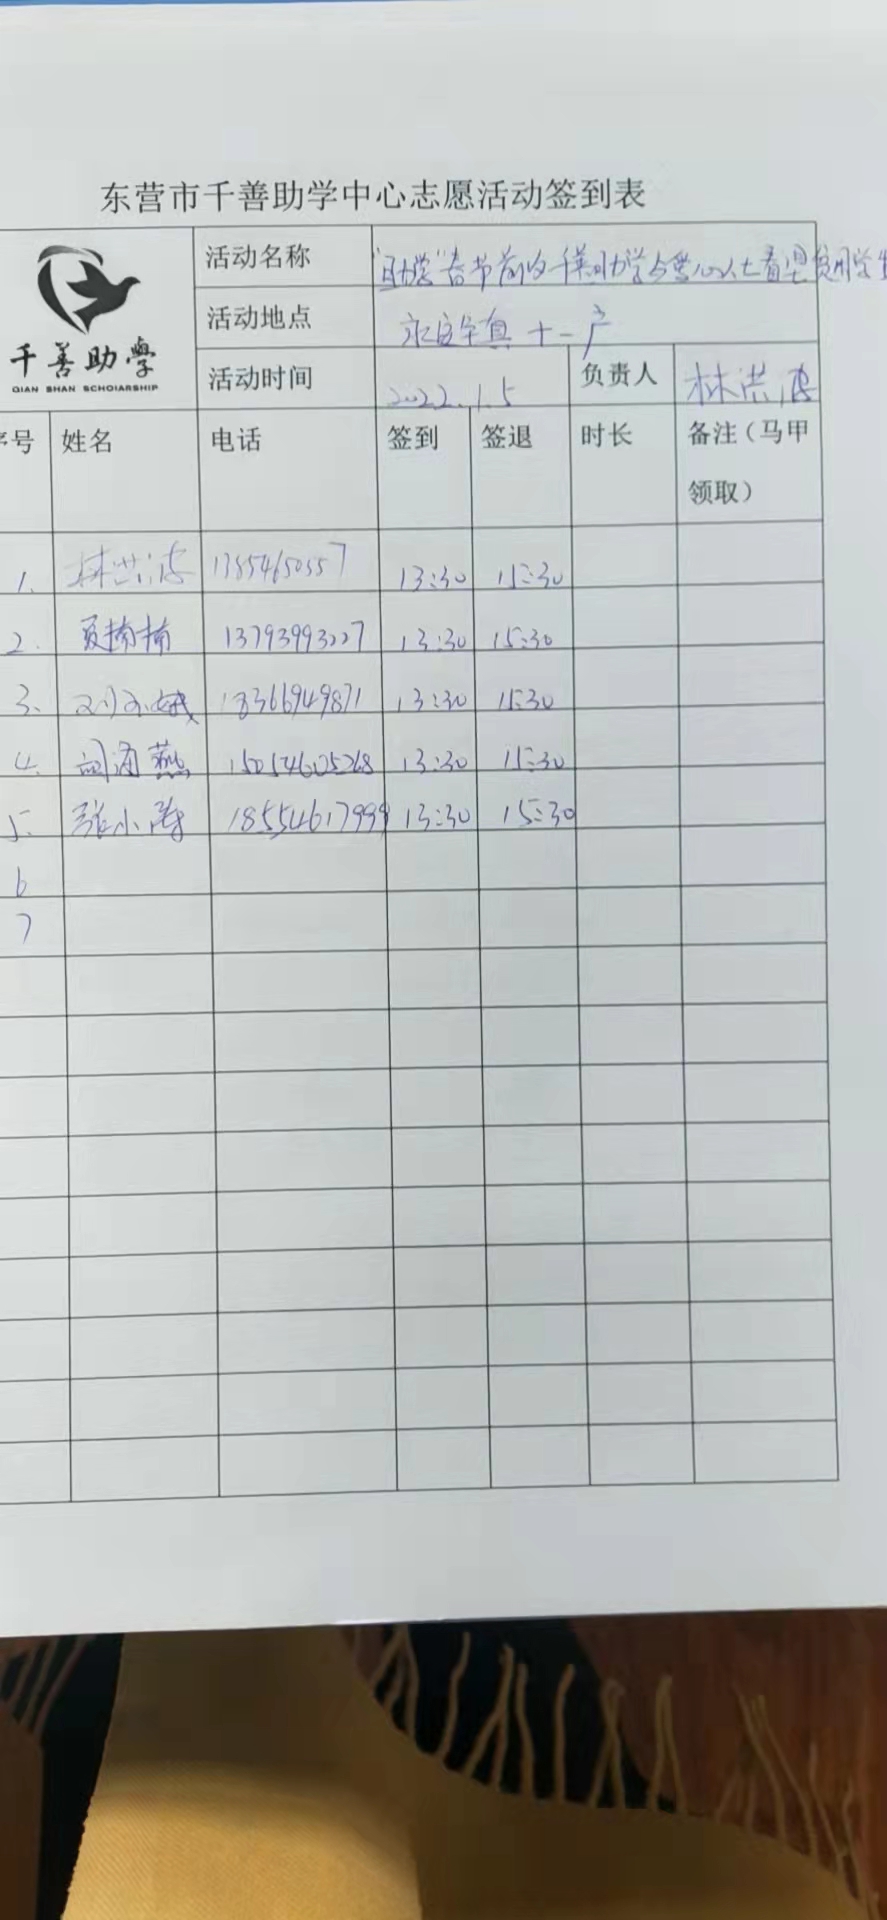 东营市千善助学中心志愿活动签到表
千善助學
QIAN SHAN SCHOIARSHIP
活动名称 "助学"春节前夕千善助学与爱心人士看望贫困学生
活动地点 十一户
活动时间 2022.1.5 负责人 林洪波
序号 姓名 电话 签到 签退 时长 备注（马甲
领取）
1. 林洪波 13:30 15:30
2. 夏楠楠 13793993227 13:30 15:30
3. 18366949871 13:30 15:30
4. 海燕 15054605268 13:30 15:30
5. 张小 18554617999 13:30 15:30
6
7